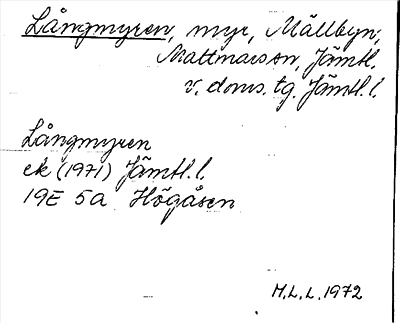 Långmyren, myr, Mällbyn,
Mattmarson, Jämtl.
v. doms. tg. Jämtl. l.
Långmyren
ek (1971) Jämtl. l.
19E 5a Högåsen
M.L.L. 1972